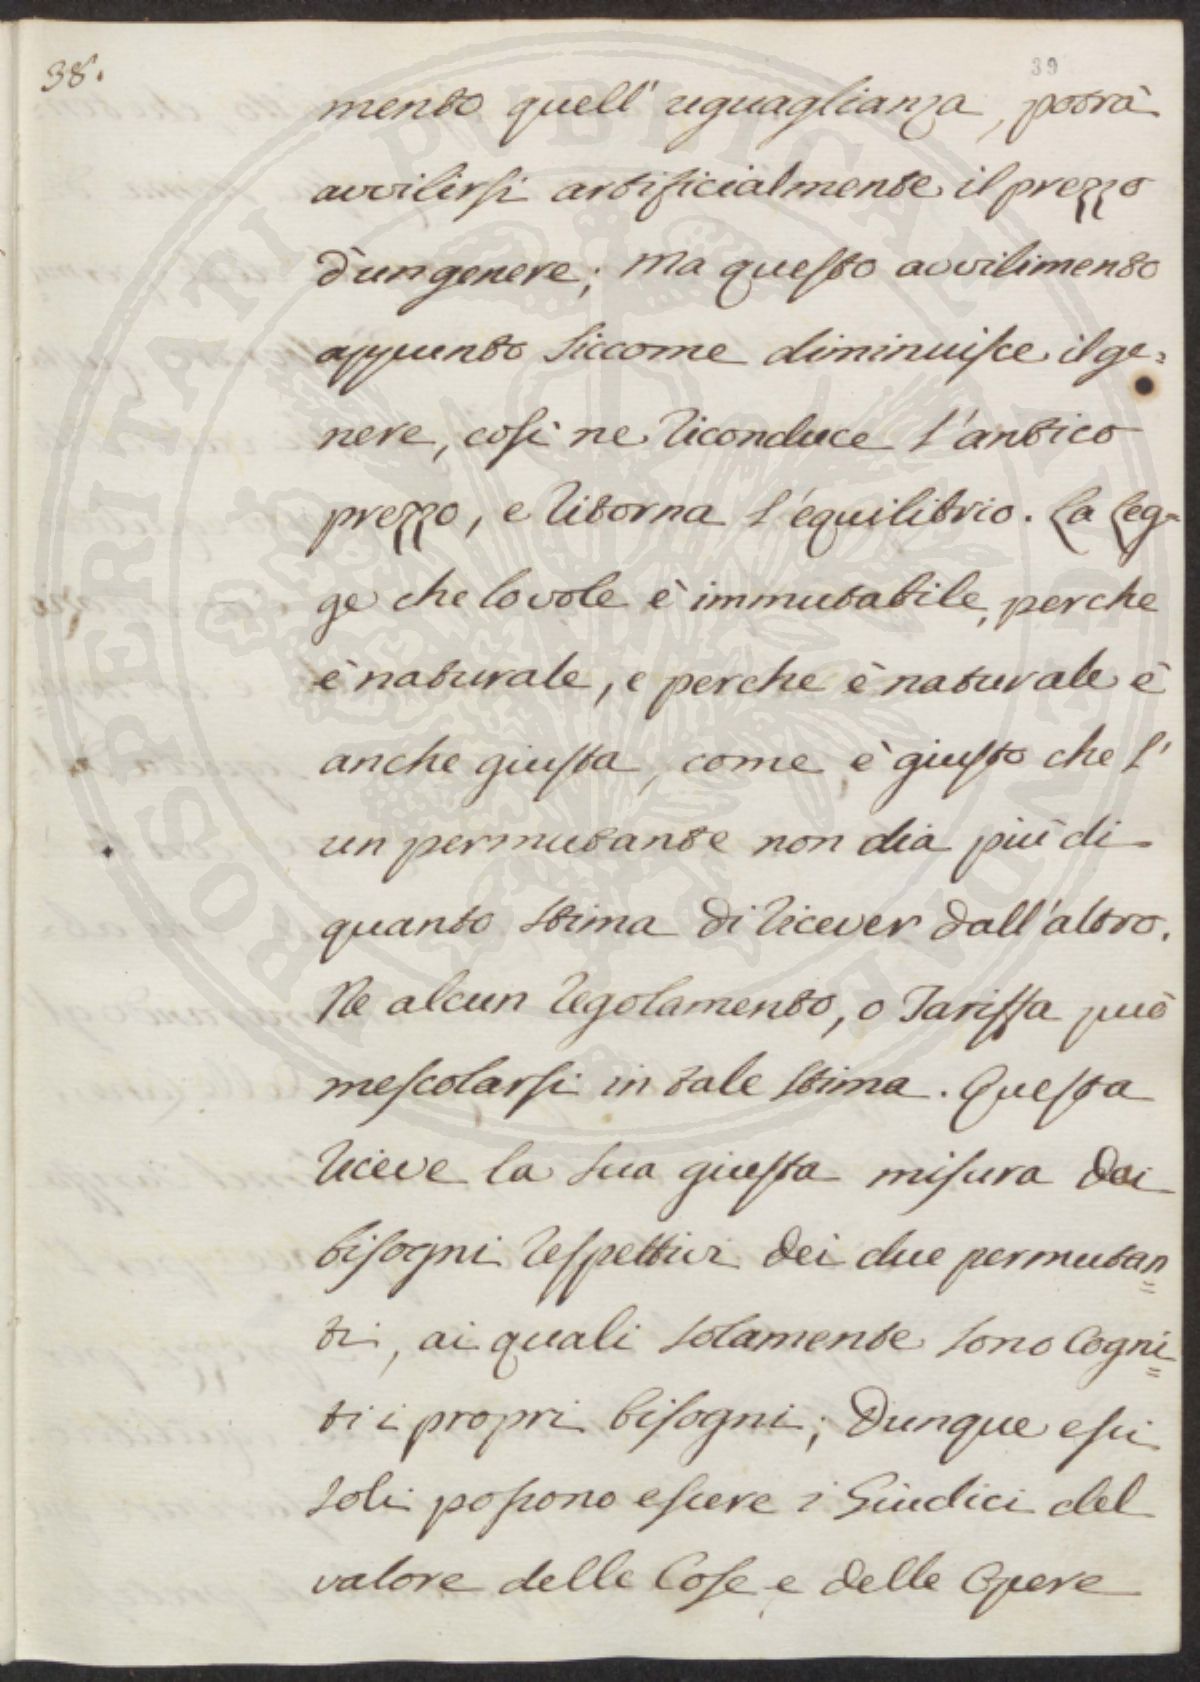 38.
39
mento quell' uguaglianza, potrà
avvilirsi artificialmente il prezzo
d'un genere; ma questo avvilimento
appunto siccome diminuisce il ge=
nere, così ne riconduce l'antico
prezzo, e ritorna l'équilibrio. La Leg=
ge che lo vole è immutabile, perche
è naturale, e perche è naturale è
anche giusta, come è giusto che l'
un permutante non dia più di
quanto stima di ricever dall'altro.
Ne alcun regolamento, o Tariffa può
mescolarsi in tale stima. Questa
riceve la sua giusta misura dai
bisogni respettivi dei due permutan=
ti, ai quali solamente sono Cogni=
ti i propri bisogni; Dunque essi
soli possono essere i Giudici del
valore delle Cose e delle Opere
PROSPERITATI PUBLICAE AUGENDAE